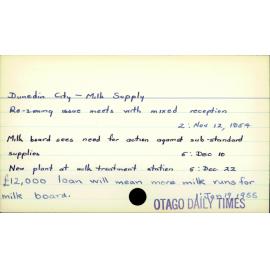 Dunedin City - Milk Supply
Re-zoning issue meets with mixed reception
2: Nov 12, 1954
Milk board sees need for action against sub-standard
supplies 5: Dec 10
New plant at milk treatment station 5: Dec 22
£12,000 loan will mean more milk runs for
milk board. 1: Jan 19 1955
OTAGO DAILY TIMES